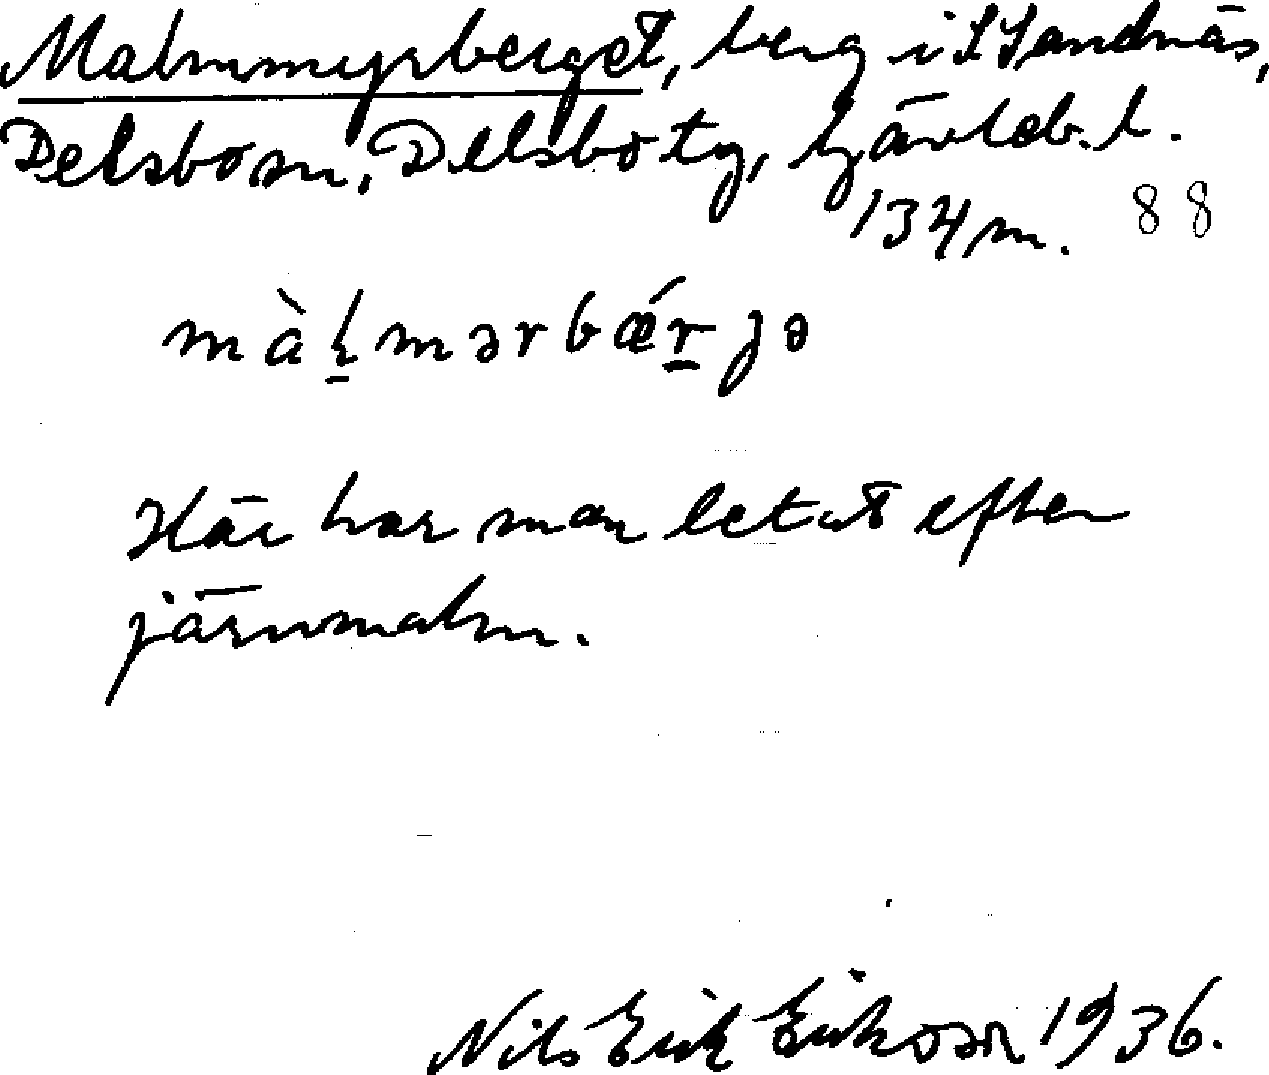 Malmmyrberget, berg i S Sandnäs,
Delsbo sn, Delsbo tg, Gävleb. l.
134 m. 88
màl̠mərbǽr̠jə
Här har man letat efter
järnmalm.
Nils Erik Eriksson 1936.